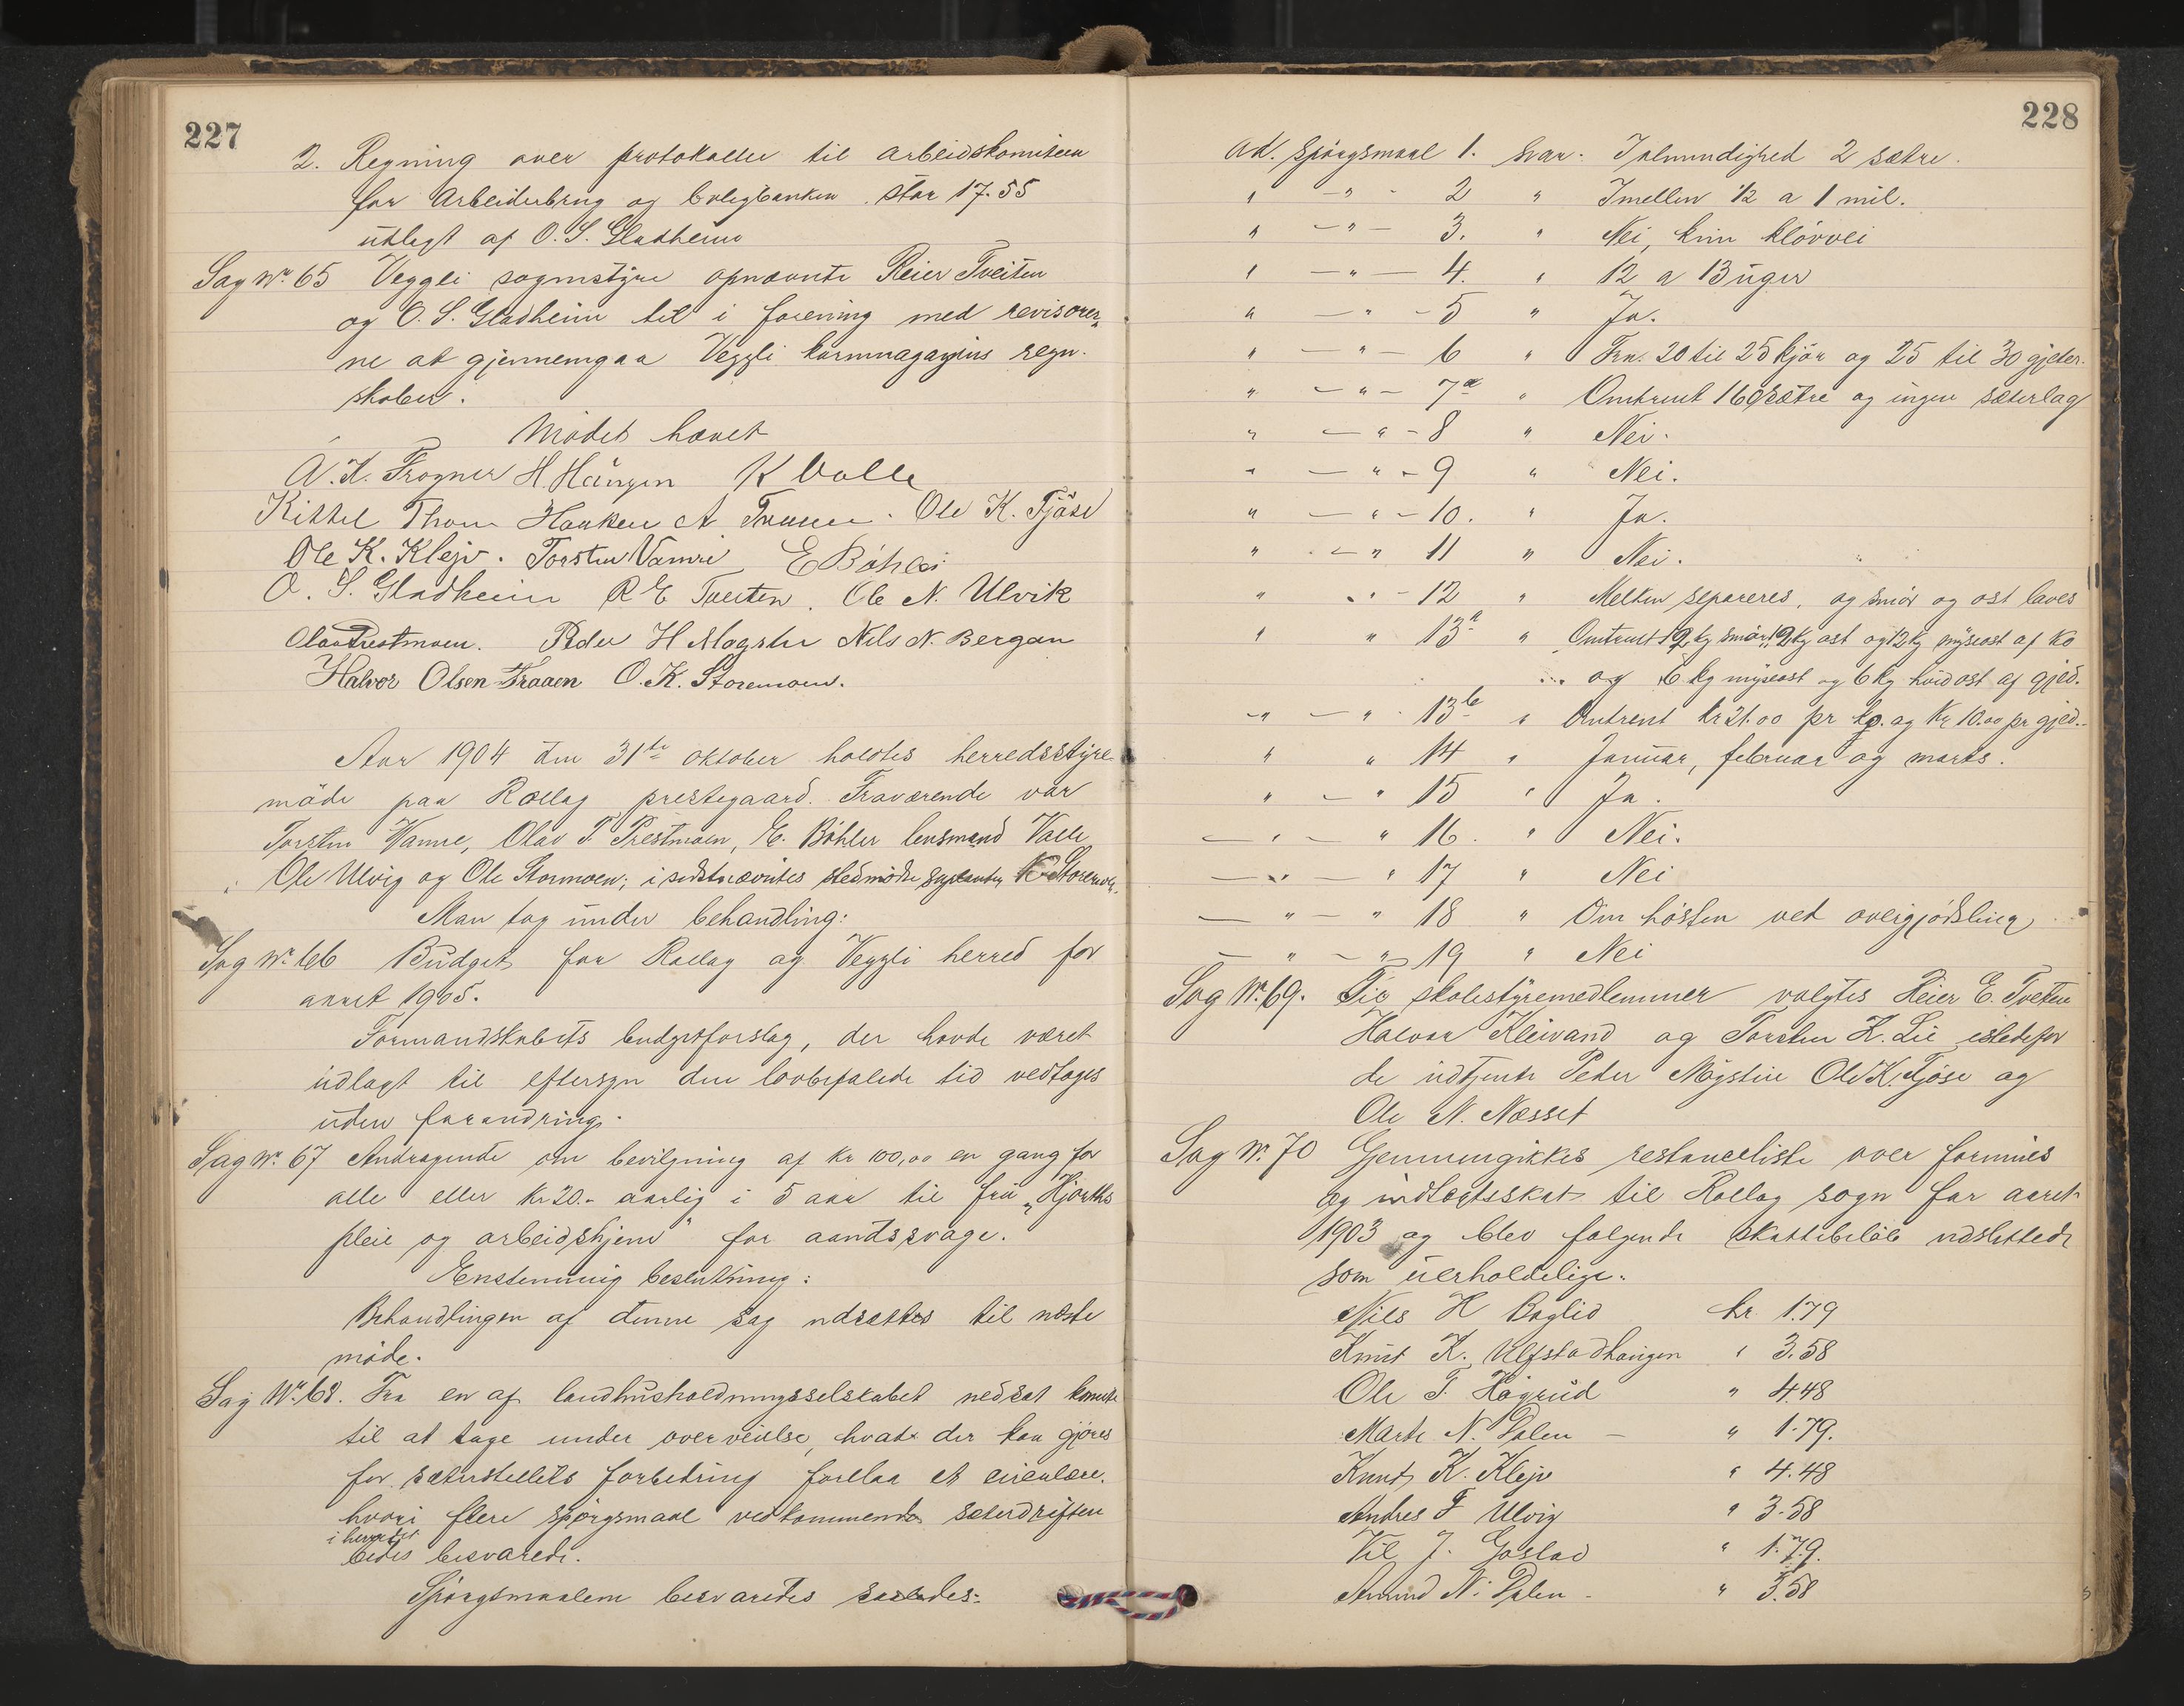 227
2. Regning over protokoller til arbeidskomiteen
for Arbeiderbrug og boligbanken stor 17.55
udlagt af O. S. Gladheim
Sag Nr. 65 Veggli sognestyre opnævnte Reier Tveiten
og O. S. Gladheim til i forening med revisorer„
ne at gjennemgaa Veggli kornmagazins regn-
skaber.
Mödet hævet
A. K. Frogner H. Haugen K Valle
Kittel Thom Hauken A Traaen. Ole K. Fjöse
Ole K. Klejv. Torsten Vamre E Böhler
O. S. Gladheim R E Tveiten. Ole N. Ulvik
Olav Prestmoen. Peder H Mogster Nils N. Bergan
Halvor Olsen Fraaen O. K. Storemoen.
Aar 1904 den 31te oktober holdtes herredsstyre
möde paa Rollag prestegaard. Fraværende var
Torsten Vamre, Olav P. Prestmoen, E. Böhler lensmand Valle
Ole Ulvig og Ole Stormoen; i sidstnævntes sted mödte suplanten K Storemoen.
Man tog under behandling:
Sag Nr. 66 Budget for Rollag og Veggli herred for
aaret 1905.
Formandskabets budgetforslag, der havde været
udlagt til eftersyn den lovbefalede tid vedtoges
uden forandring.
Sag Nr. 67 Andragende om bevilgning af kr 100,00 en gang for
alle eller kr 20.- aarlig i 5 aar til fru „Hjorths
pleie og arbeidshjem" for aandssvage.
Enstemmig beslutning:
Behandlingen af denne sag udsattes til næste
möde.
Sag Nr. 68. Fra en af landhusholdningsselskabet nedsat komite
til at tage under overveielse, hvad der kan gjöres
for sæterstellets forbedring forelaa et cirkulære.
hvori flere spörgsmaal vedkommende sæterdriften
i herredet
bedes besvarede.
Spörgsmaalene besvaredes saaledes:
228
Ad. Spörgsmaal 1. Svar. I almindighed 2 sætre.
" - " - 2 " Imellem 1/2 a 1 mil.
" - " - 3. " Nei, kun klövvei
" - " - 4. " 12 a 13 uger
" - " - 5 " Ja.
" - " - 6 " Fra. 20 til 25 kjör og 25 til 30 gjeter.
" - " - 7a " Omtrent 160 sætre og ingen sæterlag
" - " - 8 " Nei.
" - " - 9 " Nei.
" - " - 10. " Ja.
" - " 11 " Nei.
" - " - 12 " Melken separeres, og smör og ost laves
" " 13a " Omtrent 12 kg smör, 12 kg ost og 12 kg myseost af ko
og 6 kg myseost og 6 kg hvidost af gjed.
" - " - 13b " Omtrent kr 21.00 pr ko. og Kr 10.00 pr gjed.
" " 14 " Januar, februar og marts.
" - " 15 " Ja.
- " - " 16. " Nei.
- " - " 17 " Nei
- " - " 18 " Om hösten ved overgjödsling
- " - " 19 " Nei
Sag Nr. 69. Til skolestyremedlemmer valgtes Reier E. Tveten
Halvor Kleivand og Torsten K. Lie istedefor
de udtjente Peder Mogstue Ole K. Fjöse og
Ole N. Næsset
Sag Nr. 70 Gjennemgikkes restanceliste over formues
og indtægtsskat til Rollag sogn for aaret
1903 og blev følgende skattebelöb udslettede
som uerholdelige:
Nils H Baglid kr 1.79
Knut K. Ulfstadhaugen " 3.58
Ole T. Hågrud " 4.48
Marte N. Dalen - " 1.79.
Knut K. Klejv " 4.48
Andres F Ulvig " 3.58
Kil J. Goslad " 1.79.
Amund N. Dalen - " 3.58